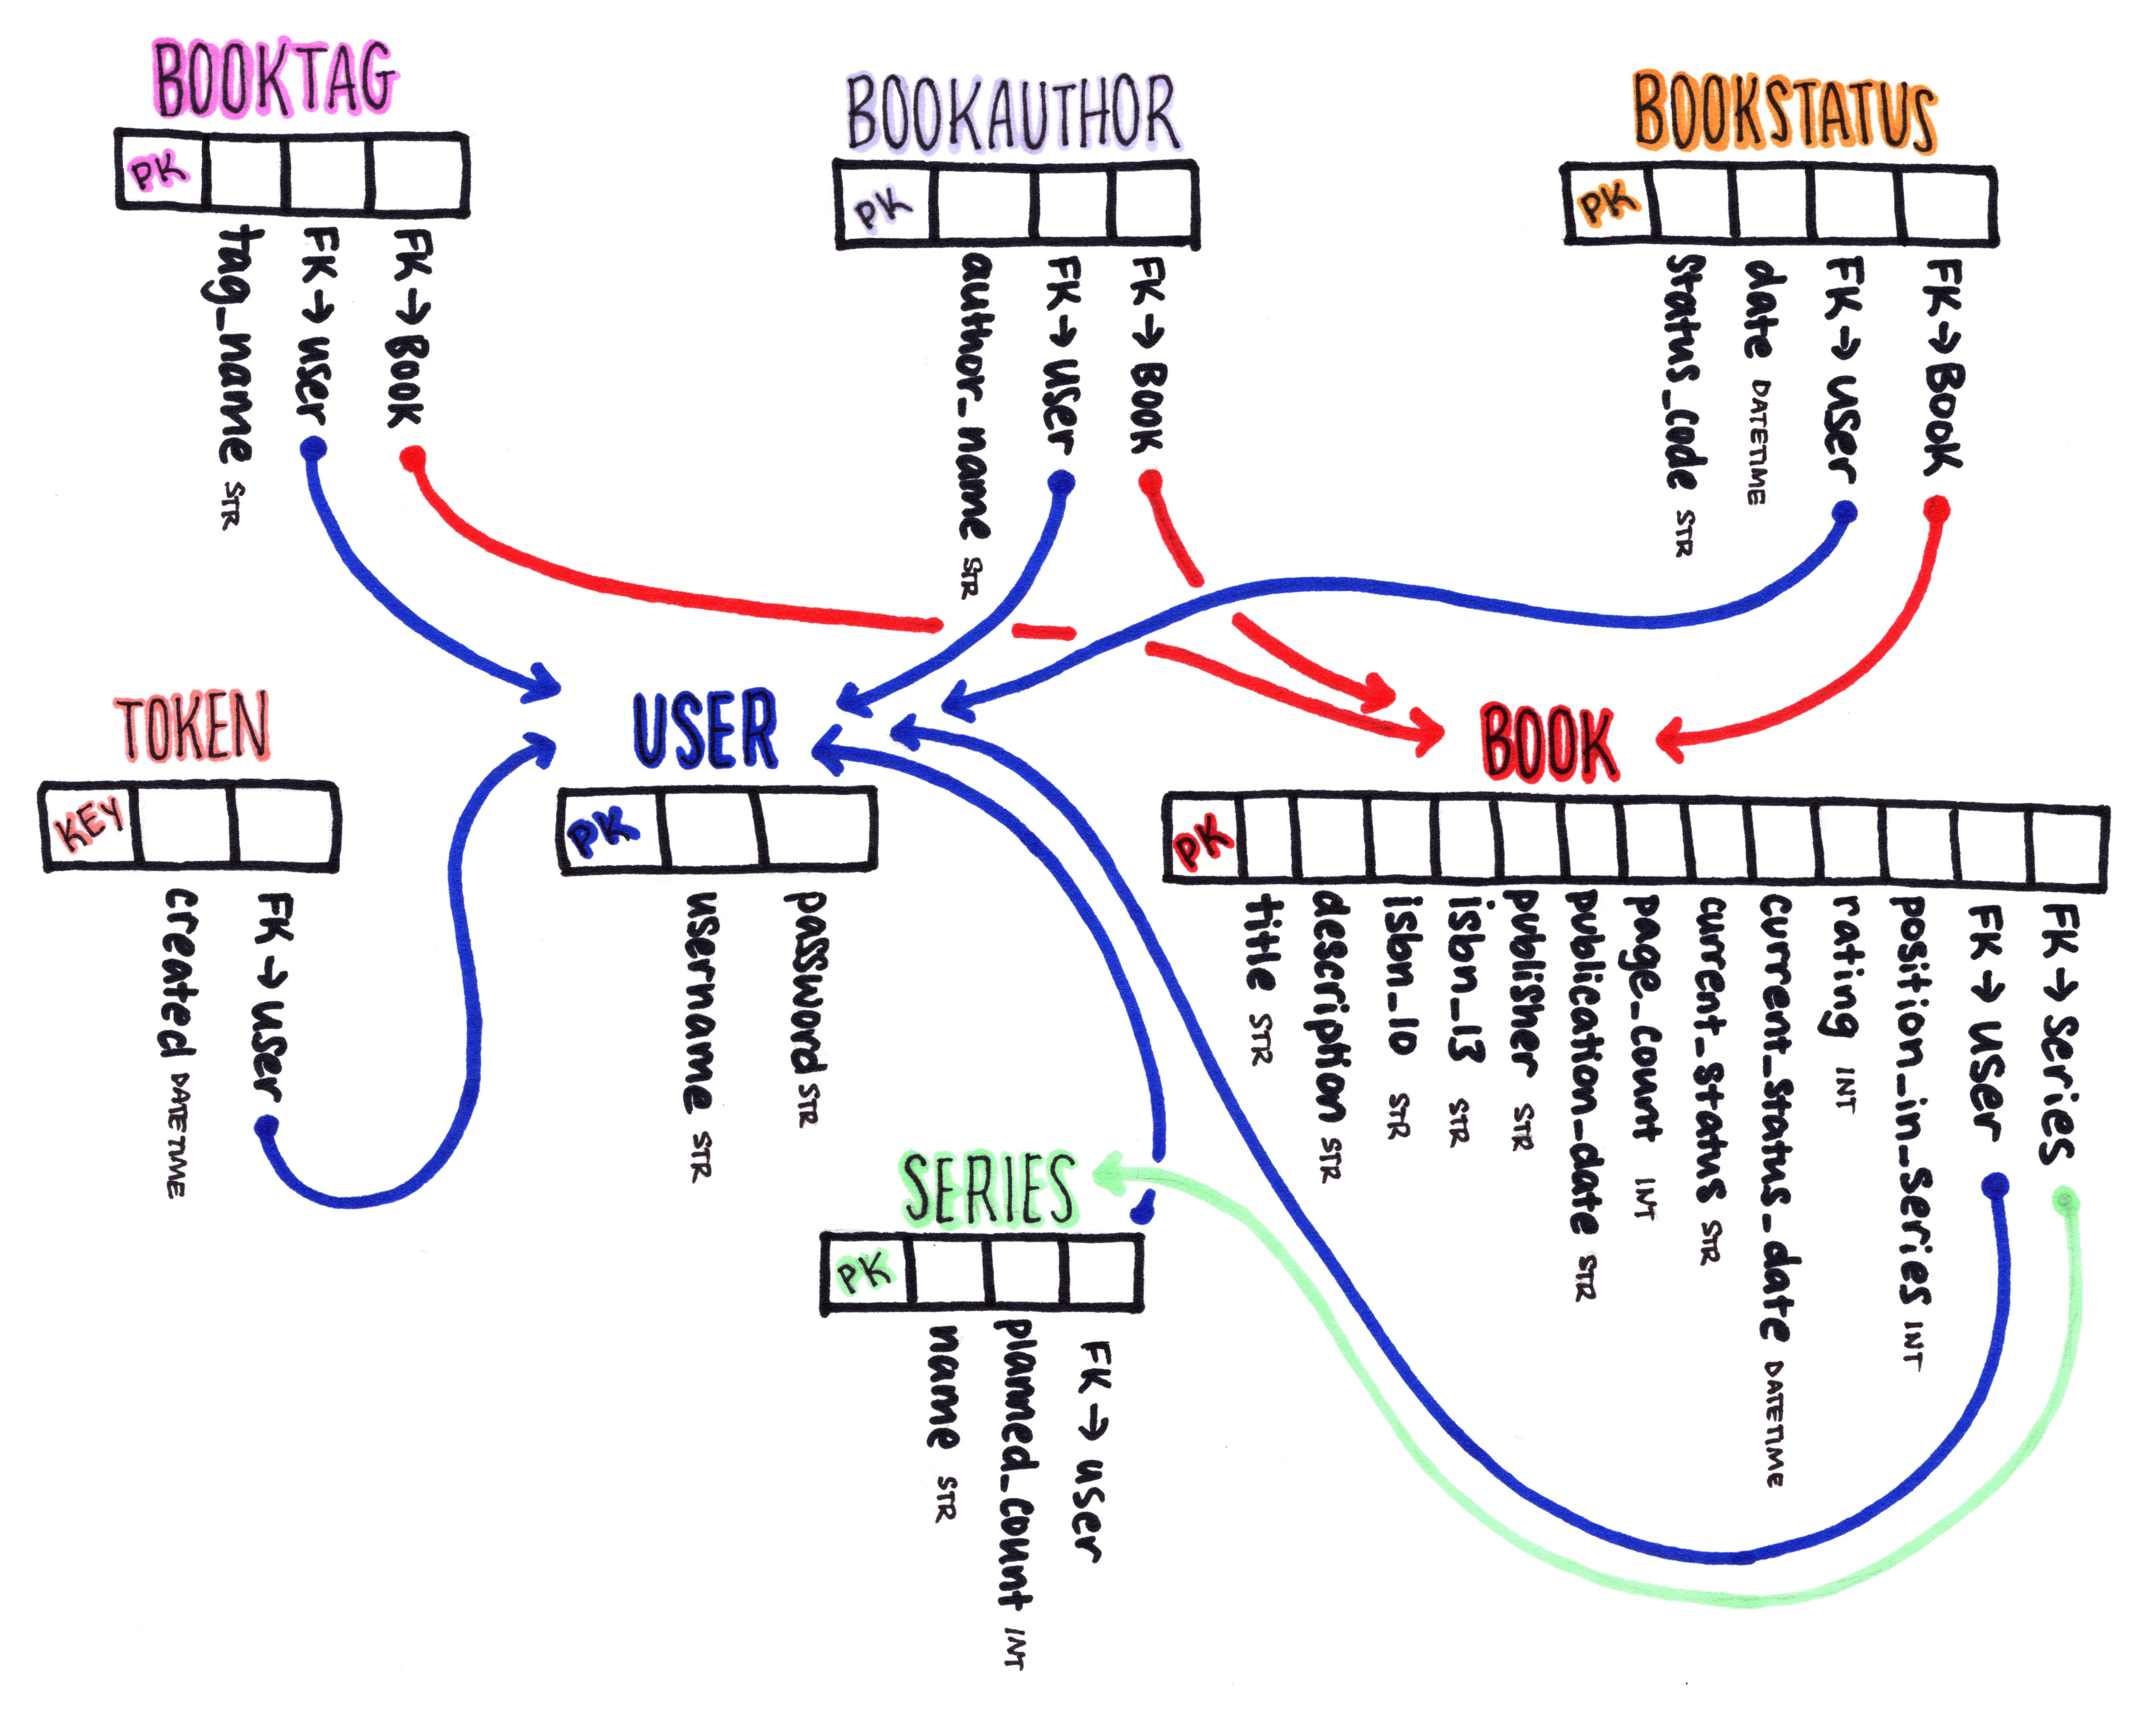 BOOKTAG
PK
tag_name STR
FK → User
FK → Book
BOOKAUTHOR
PK
author_name STR
FK → User
FK → Book
BOOKSTATUS
PK
status_code STR
date DATETIME
FK → User
FK → Book
TOKEN
KEY
created DATETIME
FK → User
USER
PK
username STR
password STR
BOOK
PK
title STR
description STR
isbn_10 STR
isbn_13 STR
publisher STR
publication_date STR
page_count INT
current_status STR
current_status_date DATETIME
rating INT
position_in_series INT
FK → User
FK → Series
SERIES
PK
name STR
planned_count INT
FK → User